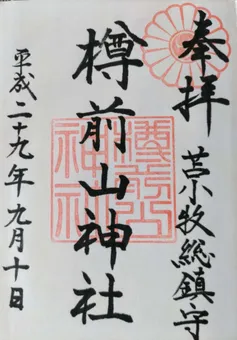 奉拝
苫小牧総鎮守
樽前山神社
樽前山
神社
平成二十九年九月十日